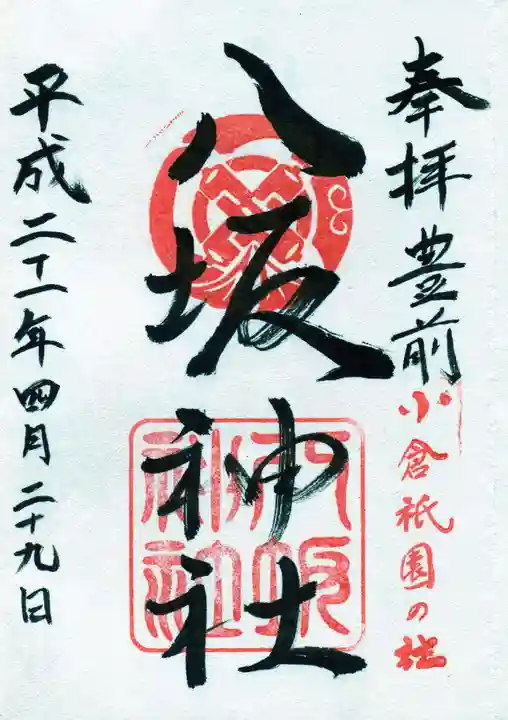 奉拝 豊前
小倉祇園の社
八坂神社
八坂
神社
平成二十一年四月二十九日